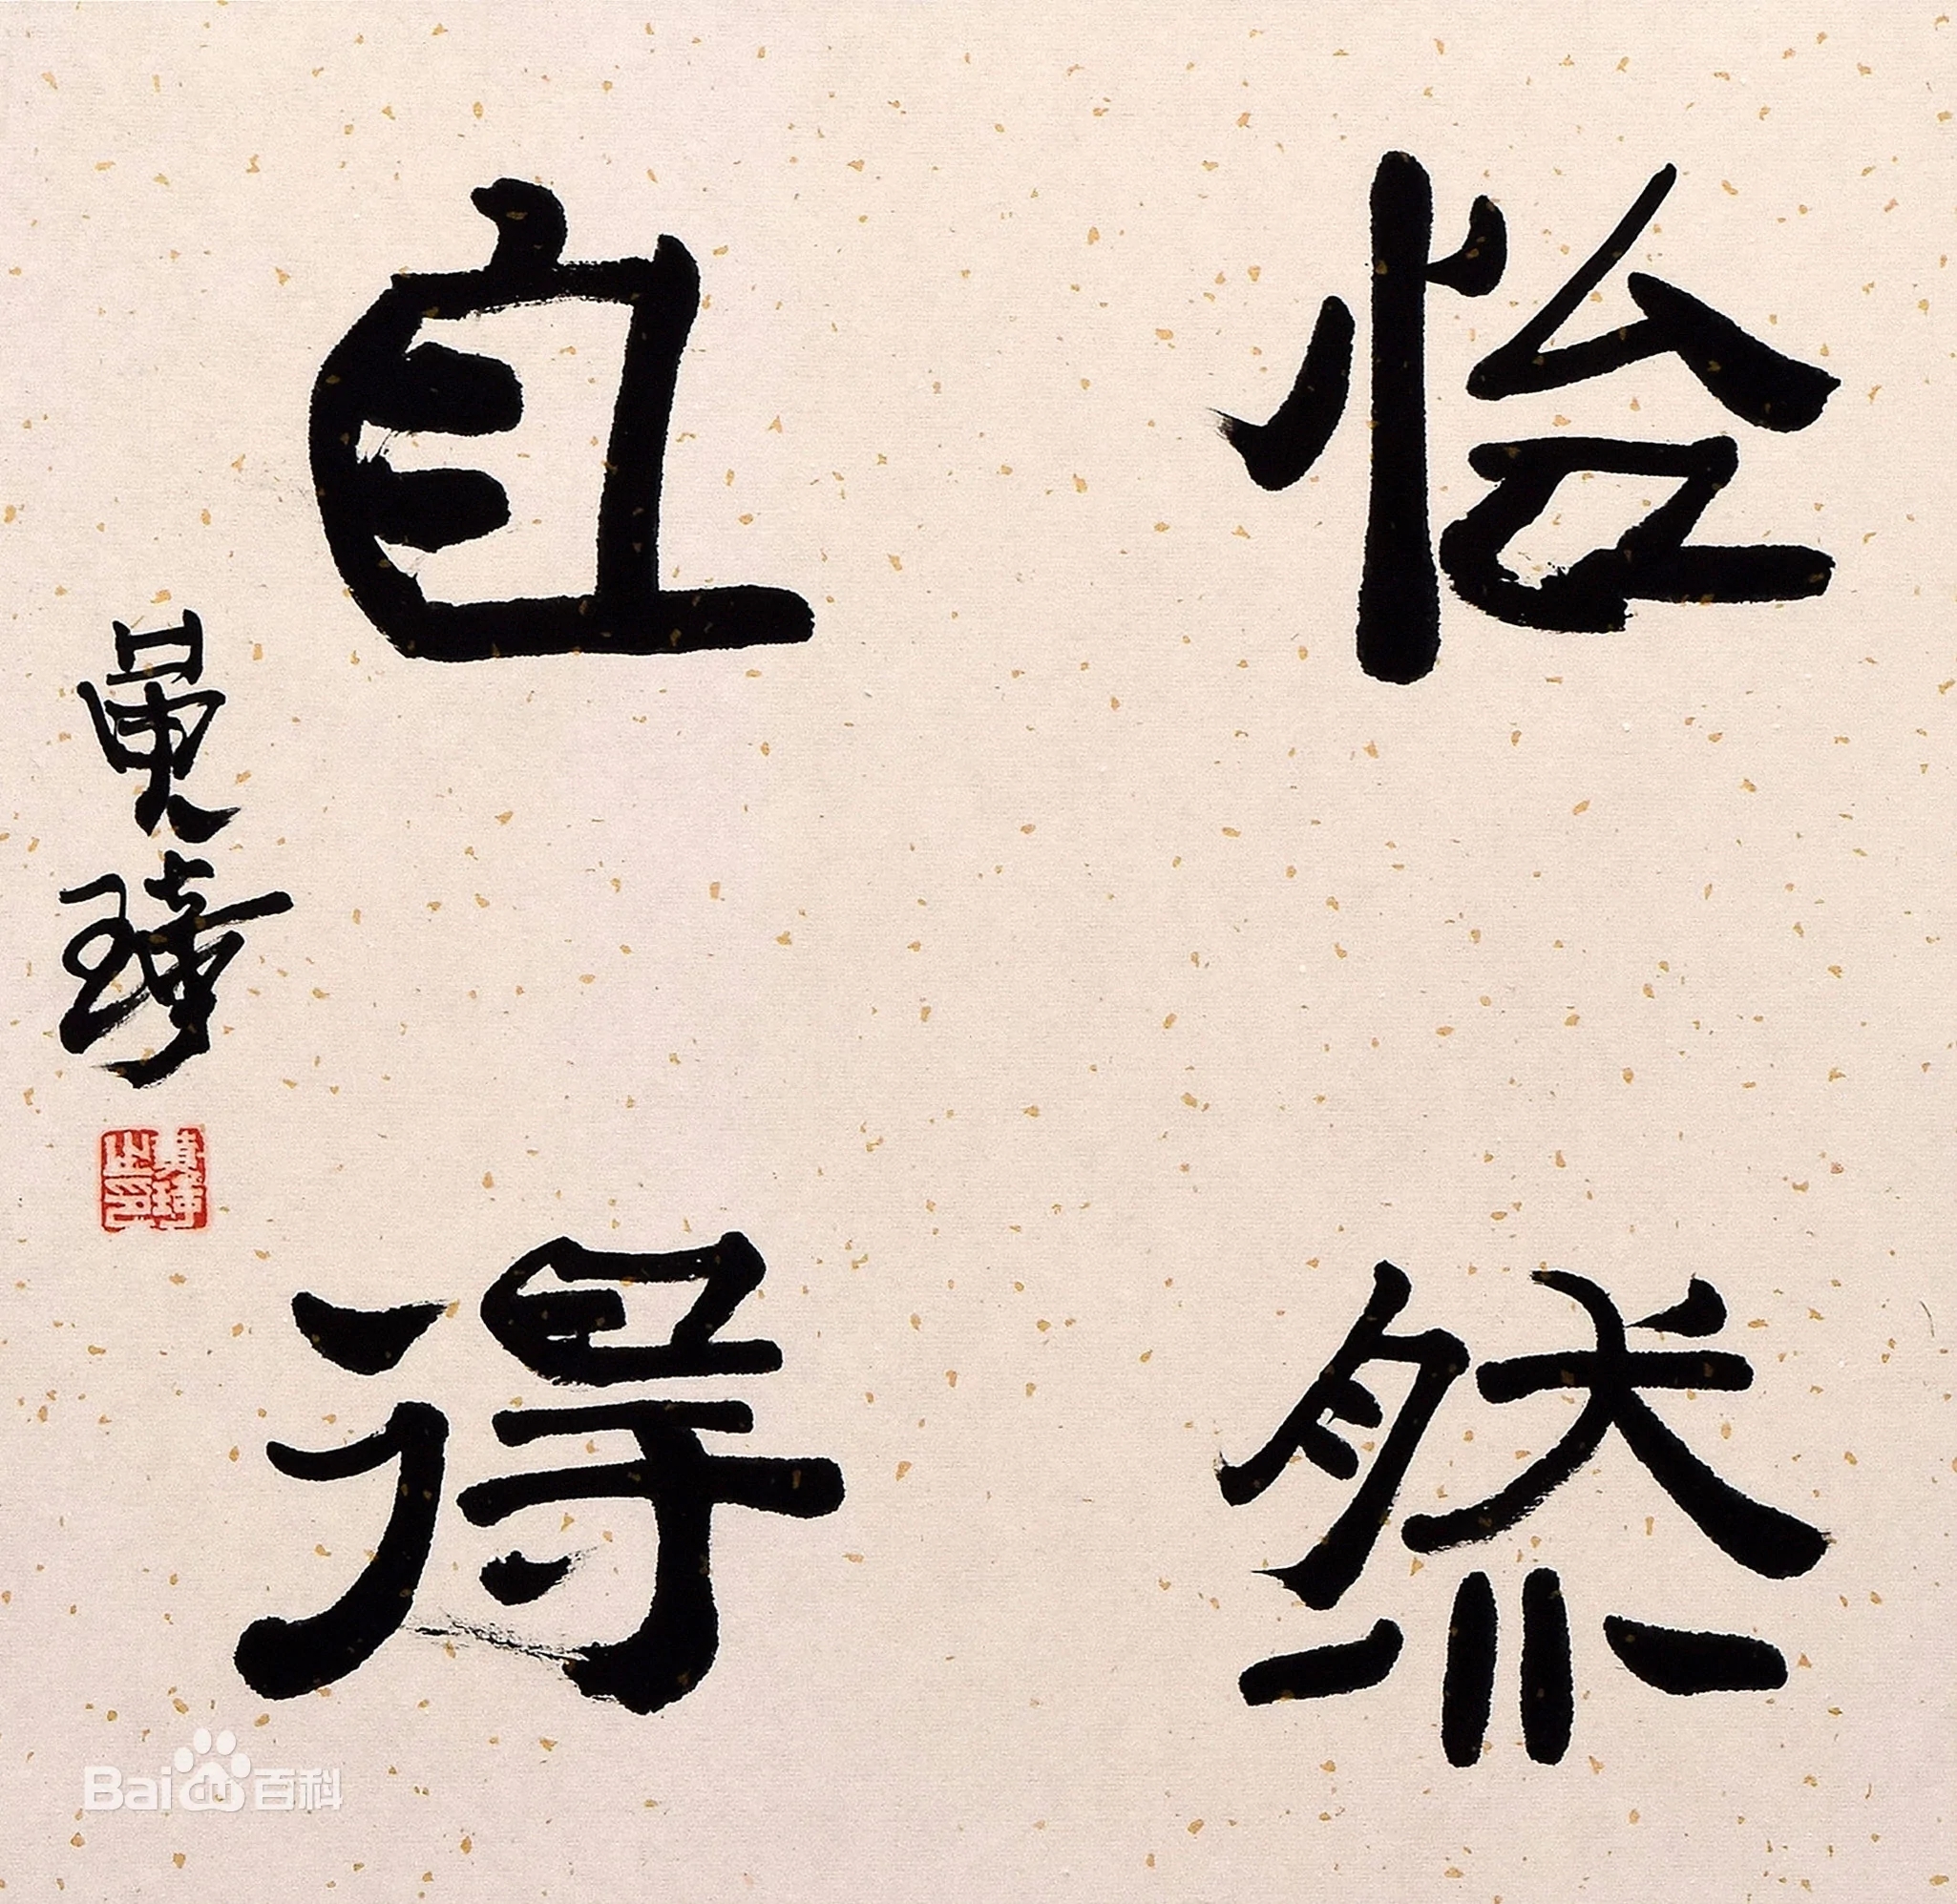 怡然
自得
黄
Bai百科